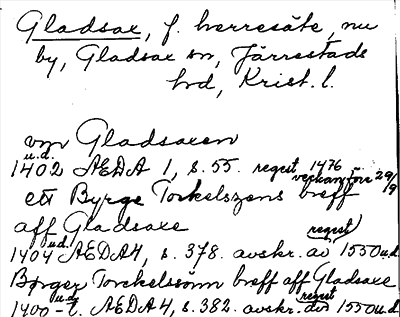 Gladsax, f. herresäte, nu
by, Gladsax sn, Järrestads
hd, Krist. l.
vyn Gladsaxen
u.d. 1476
1402 ÆDA 1, s. 55. regest verkan. före 29/9
ett Byrge Torkelszens breff
aff Gladsaxe
u.d. regest
1404 ÆDA4, s. 378. avskr. av 1550 u.d.
Børger Torckelssønn breff aff Gladsaxe
u.d. regest
1400-t. ÆDA4, s. 382. avskr. av 1550 u.d.